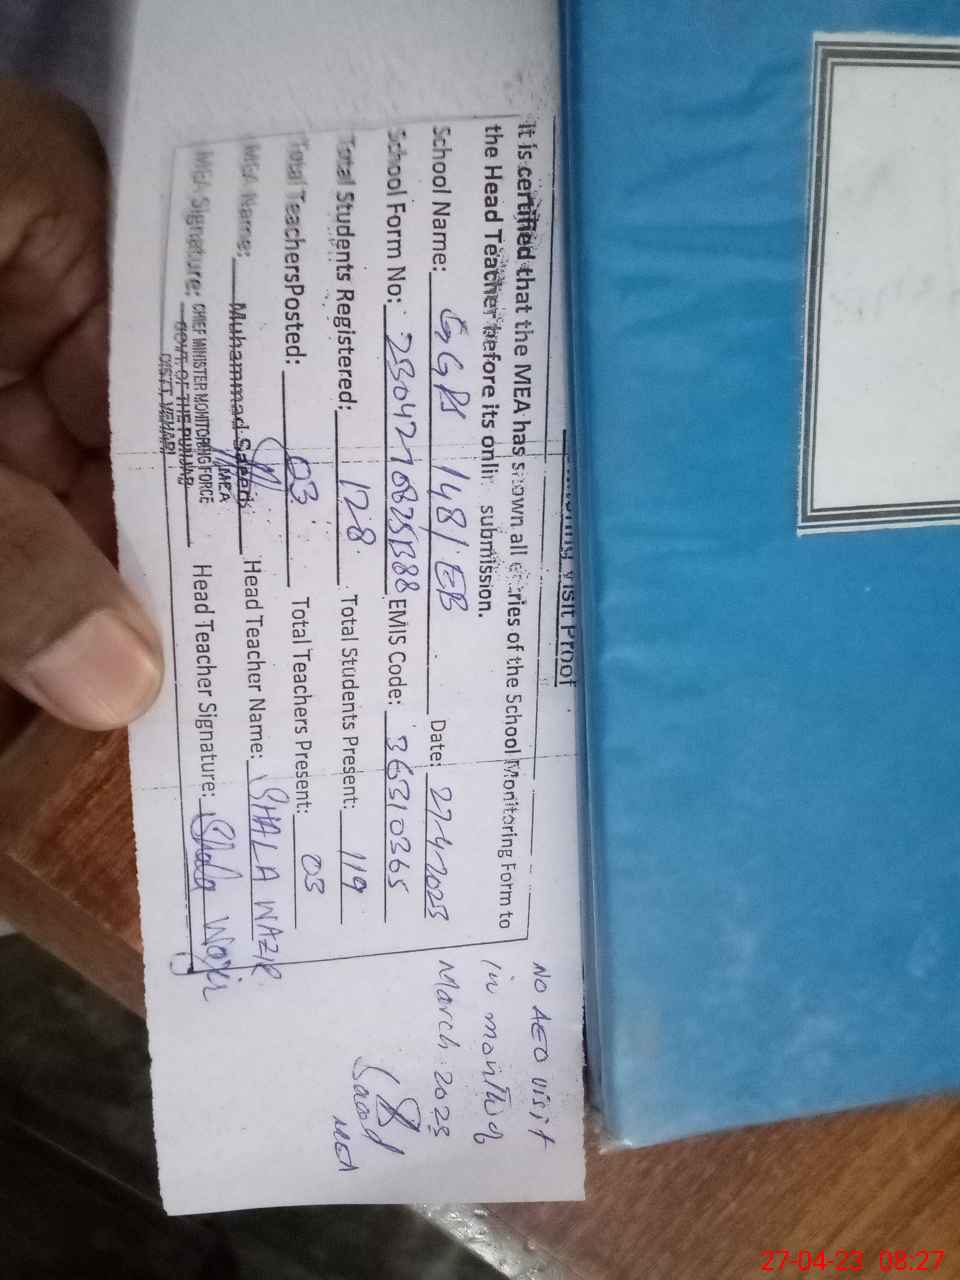 Visit Proof
It is certified that the MEA has shown all entries of the School Monitoring Form to
the Head Teacher before its online submission.
School Name: GGPS 148/EB Date: 27-4-2023
School Form No: EMIS Code: 36310365
Total Students Registered: 128 Total Students Present: 119
Total TeachersPosted: 03 Total Teachers Present: 03
MEA Name: Muhammad Saeed Head Teacher Name: SHALA WAZIR
MEA
MEA Signature: CHIEF MINISTER MONITORING FORCE Head Teacher Signature: Shala Wazir
GOVT. OF THE PUNJAB
DISTT. VEHARI
NO AEO visit
in month of
March 2023
Saeed
MEA
27-04-23 08:27